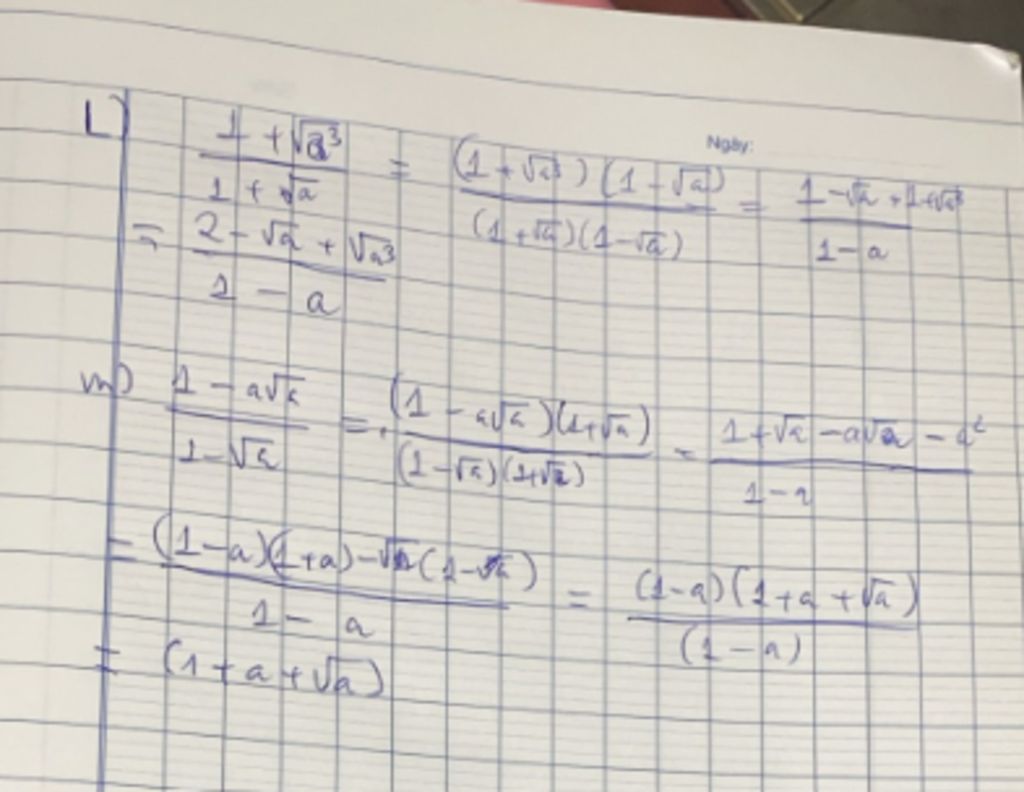 Ngày:
L) (1 + √a³)/(1 + √a) = ((1 + √a³)(1 - √a))/((1 + √a)(1 - √a)) = (1 - √a + 1 + √a³)/(1 - a)
= (2 - √a + √a³)/(1 - a)
m) (1 - a√a)/(1 - √a) = ((1 - a√a)(1 + √a))/((1 - √a)(1 + √a)) = (1 + √a - a√a - a²)/(1 - a)
= ((1 - a)(1 + a) - √a(1 - √a))/(1 - a) = ((1 - a)(1 + a + √a))/((1 - a))
= (1 + a + √a)